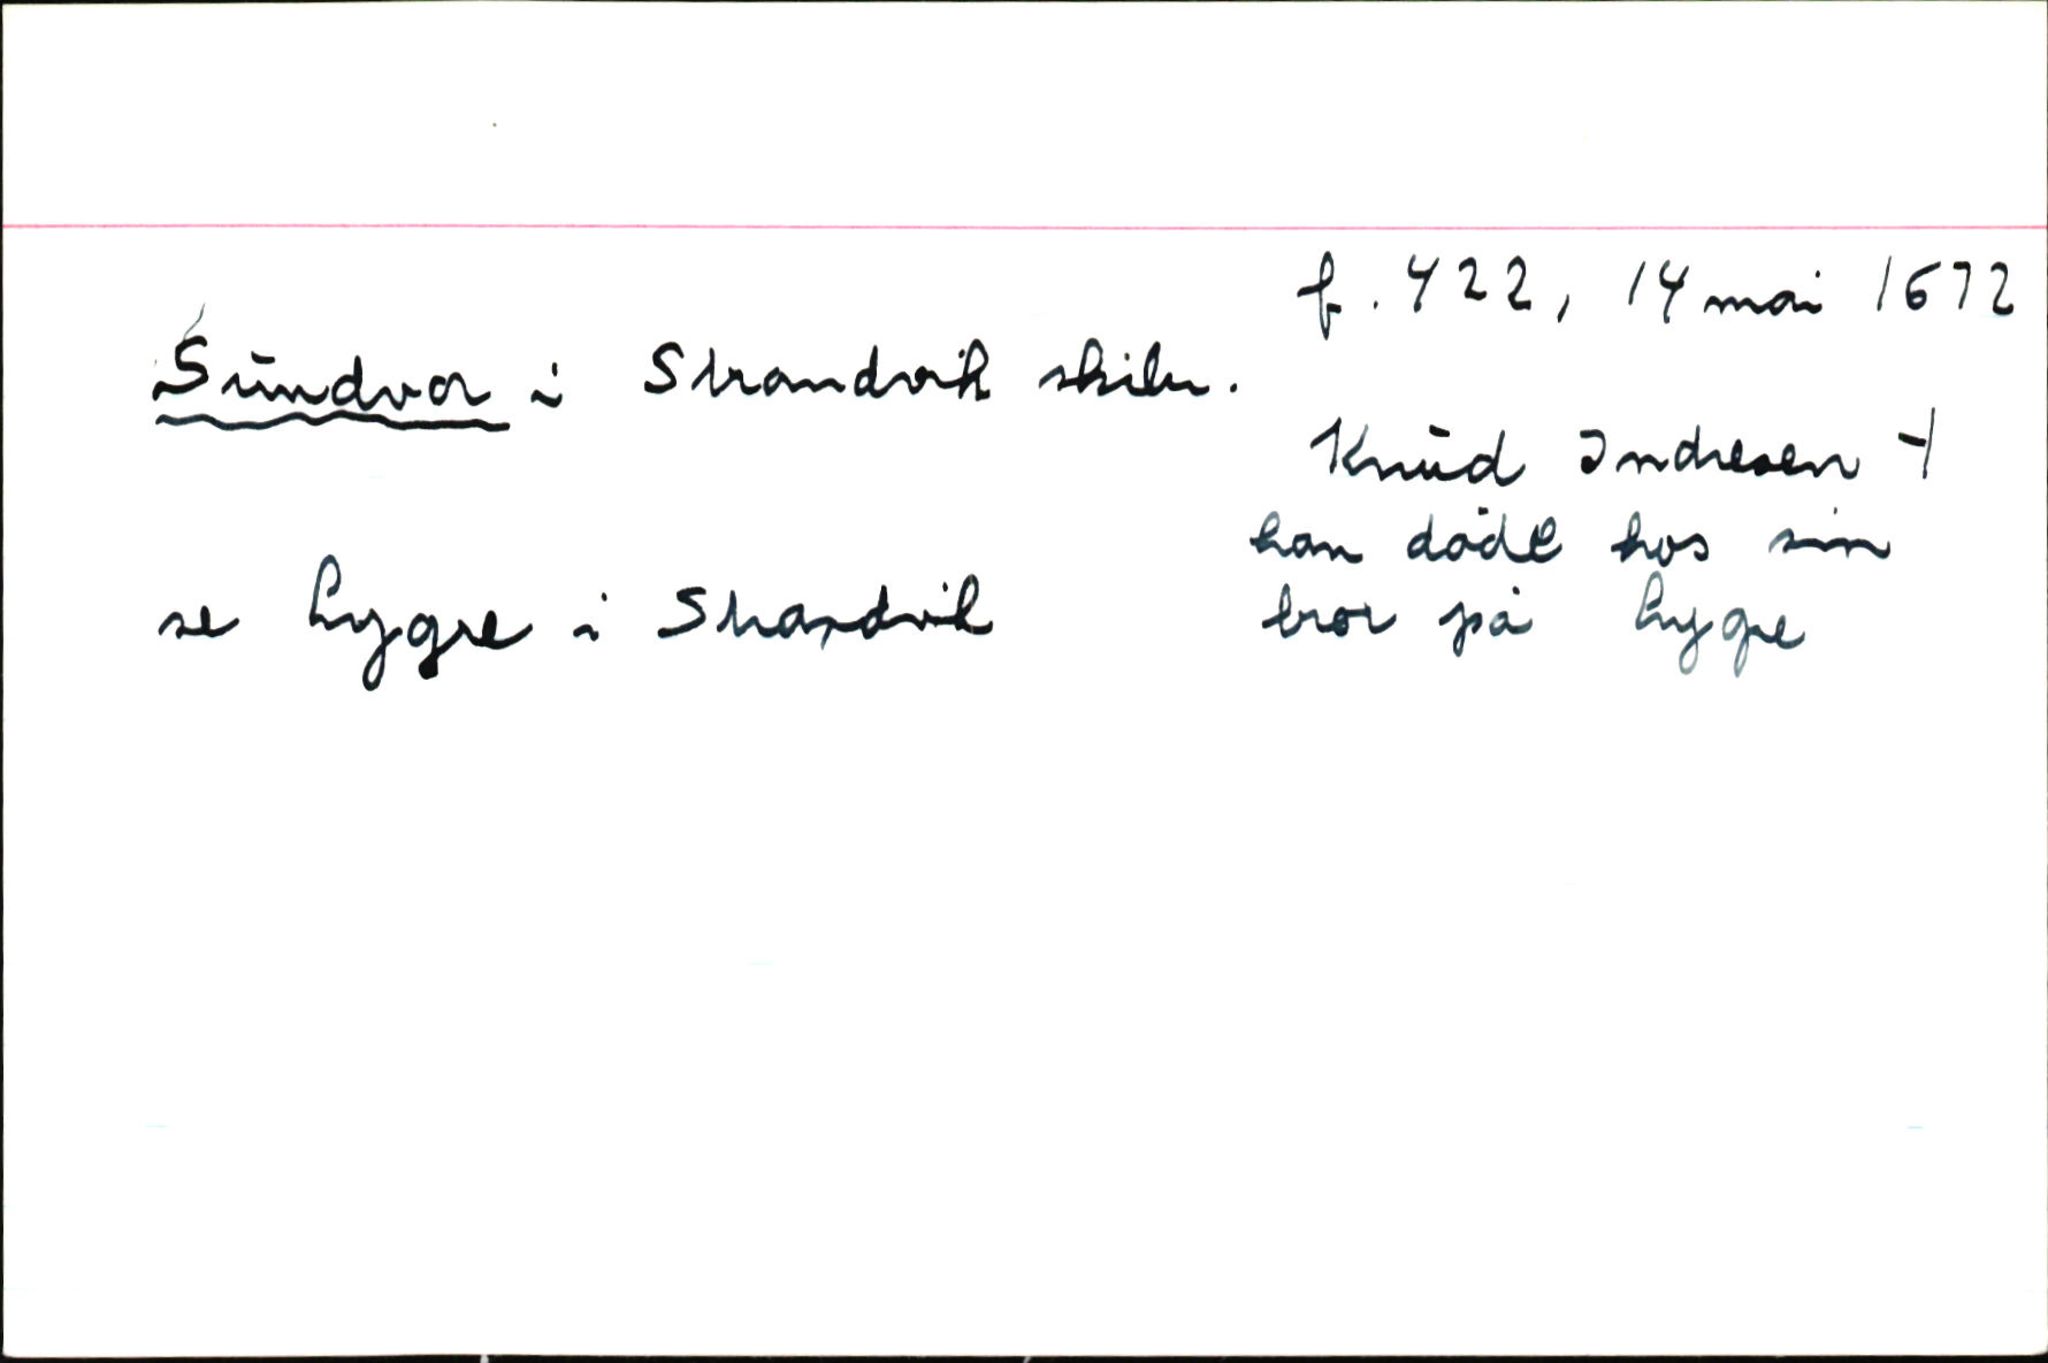 f. 422, 14 mai 1672
Sundvor i Strandvik skibr.
Knud Indresen †
han døde hos sin
se Lygre i Strandvik
bror på Lygre